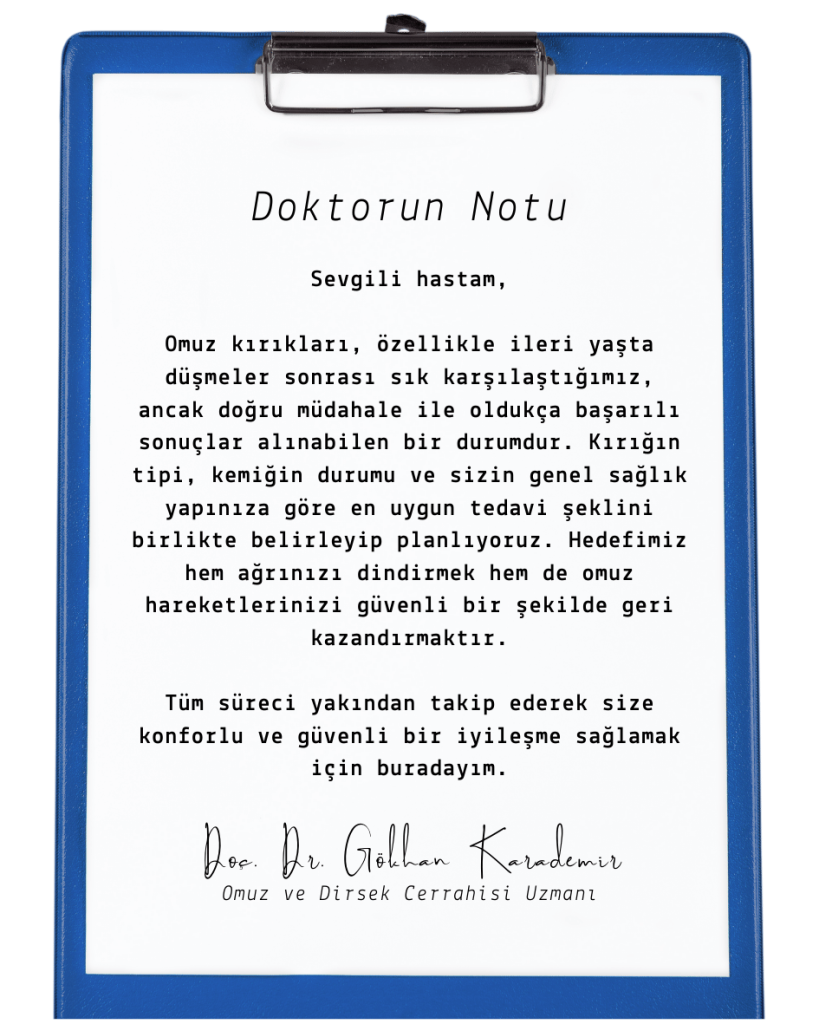 Doktorun Notu
Sevgili hastam,
Omuz kırıkları, özellikle ileri yaşta
düşmeler sonrası sık karşılaştığımız,
ancak doğru müdahale ile oldukça başarılı
sonuçlar alınabilen bir durumdur. Kırığın
tipi, kemiğin durumu ve sizin genel sağlık
yapınıza göre en uygun tedavi şeklini
birlikte belirleyip planlıyoruz. Hedefimiz
hem ağrınızı dindirmek hem de omuz
hareketlerinizi güvenli bir şekilde geri
kazandırmaktır.
Tüm süreci yakından takip ederek size
konforlu ve güvenli bir iyileşme sağlamak
için buradayım.
Doç. Dr. Gökhan Karademir
Omuz ve Dirsek Cerrahisi Uzmanı